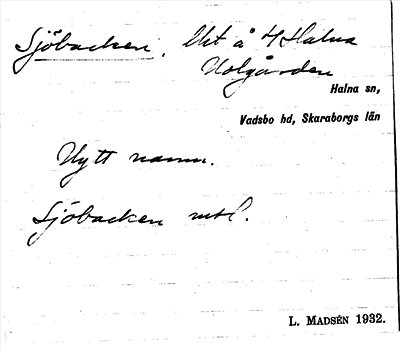 Sjöbacken, Utt å 4 Halna
Holgården
Halna sn,
Vadsbo hd, Skaraborgs län
Nytt namn.
Sjöbacken mtl.
L. MADSÉN 1932.